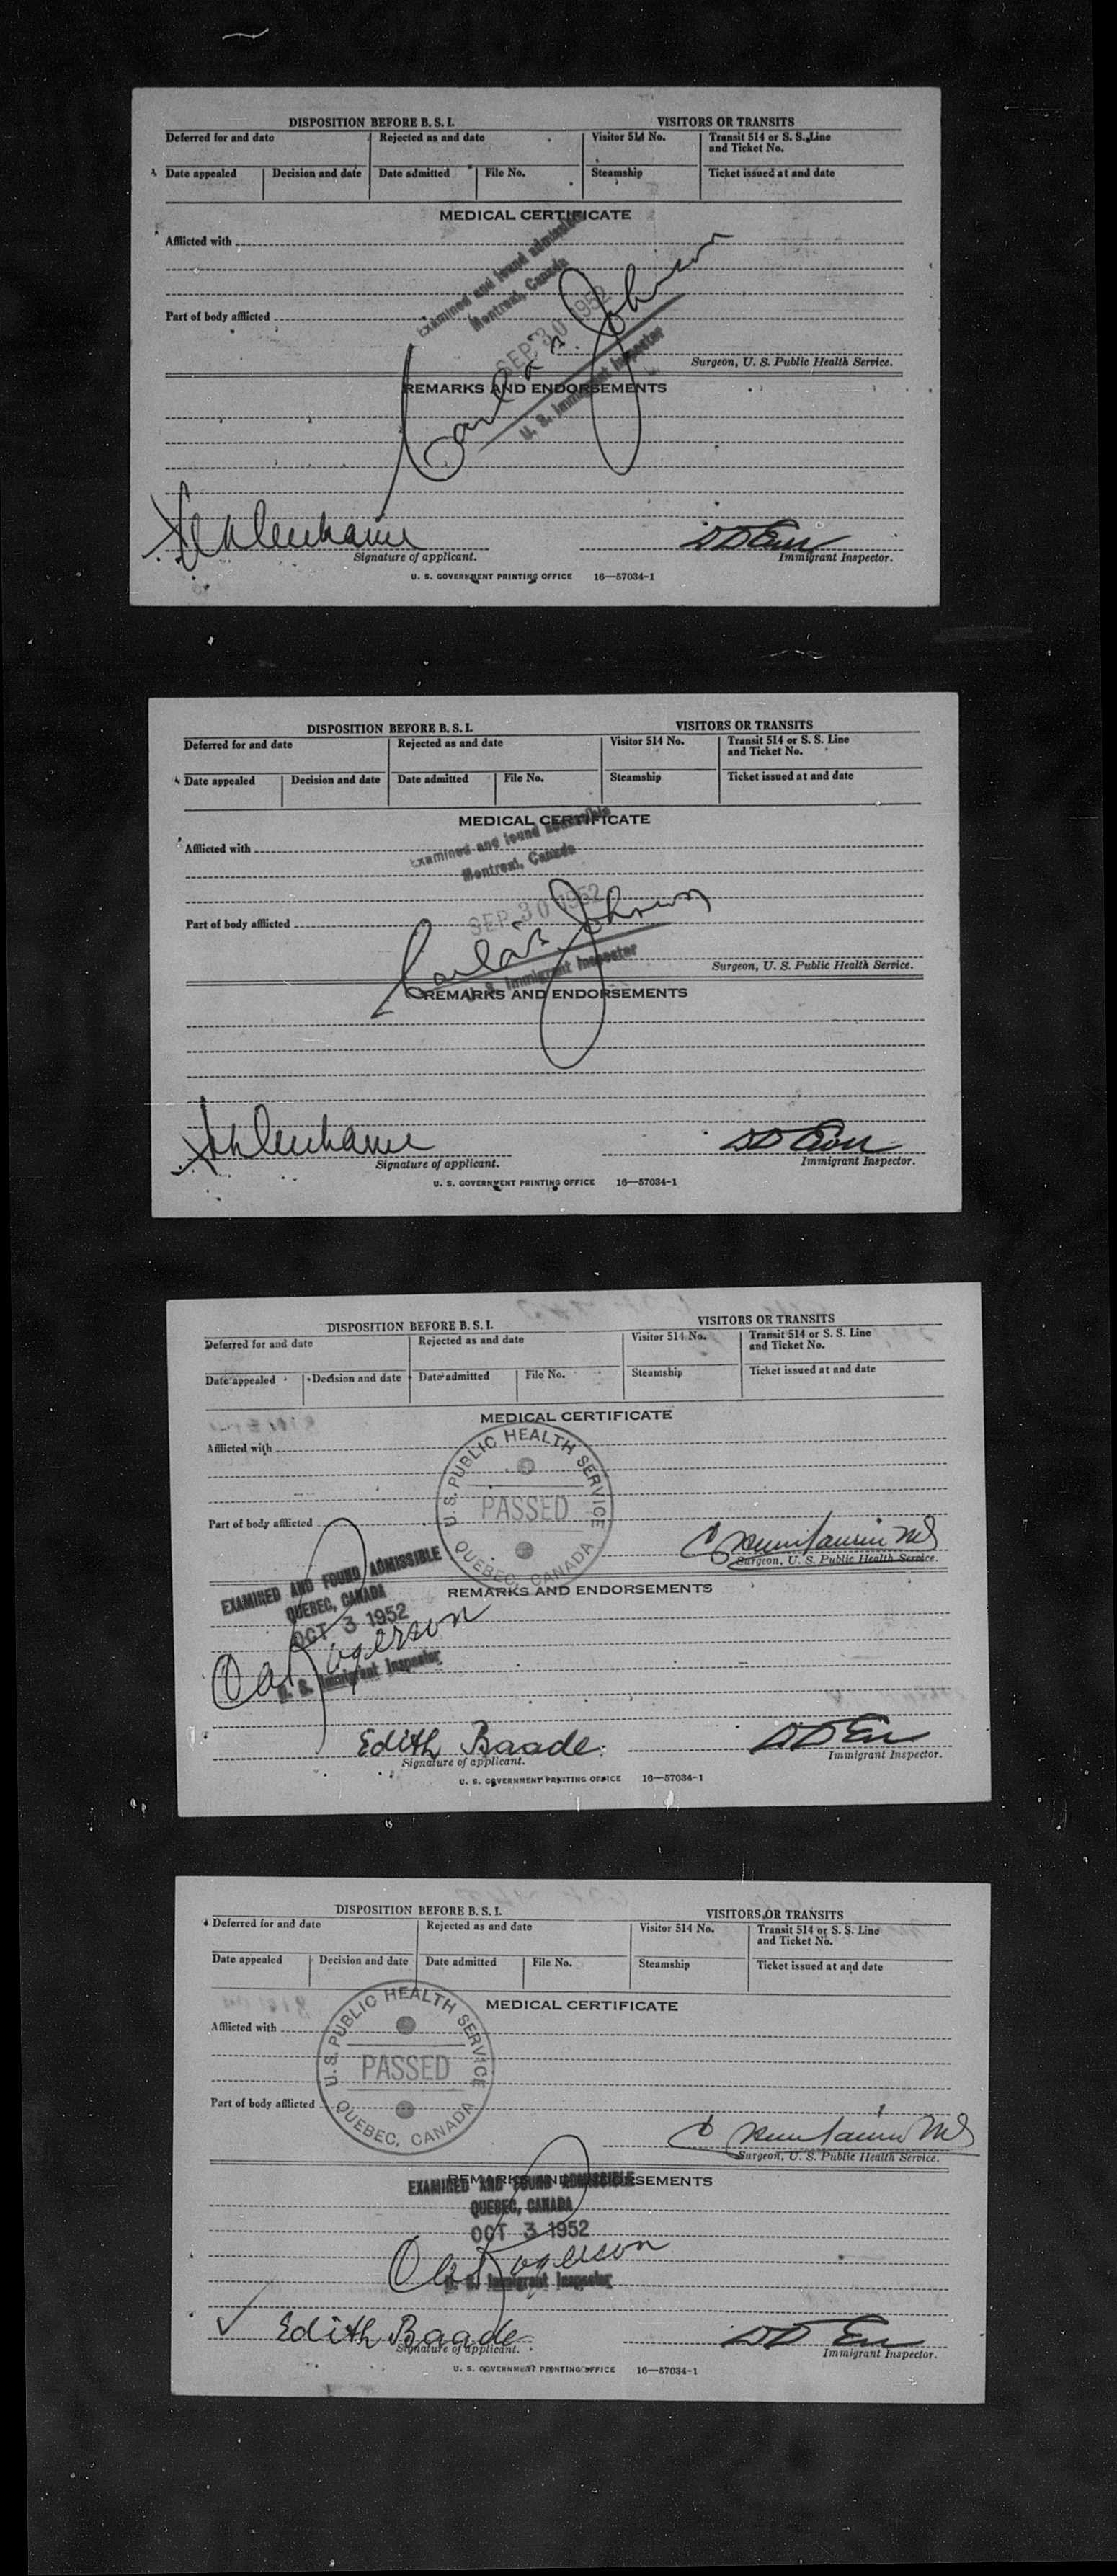 DISPOSITION BEFORE B. S. I. VISITORS OR TRANSITS
Deferred for and date Rejected as and date Visitor 514 No. Transit 514 or S. S. Line
and Ticket No.
Date appealed Decision and date Date admitted File No. Steamship Ticket issued at and date
MEDICAL CERTIFICATE
Afflicted with
Examined and found admissible
Montreal, Canada
Part of body afflicted
SEP 30 1952
Johnson
Surgeon, U. S. Public Health Service.
U. S. Immigrant Inspector
REMARKS AND ENDORSEMENTS
Signature of applicant. Immigrant Inspector.
U. S. GOVERNMENT PRINTING OFFICE 16—57034-1
DISPOSITION BEFORE B. S. I. VISITORS OR TRANSITS
Deferred for and date Rejected as and date Visitor 514 No. Transit 514 or S. S. Line
and Ticket No.
Date appealed Decision and date Date admitted File No. Steamship Ticket issued at and date
MEDICAL CERTIFICATE
Afflicted with
Examined and found admissible
Montreal, Canada
Part of body afflicted
SEP 30 1952
Johnson
Surgeon, U. S. Public Health Service.
U. S. Immigrant Inspector
REMARKS AND ENDORSEMENTS
Signature of applicant. Immigrant Inspector.
U. S. GOVERNMENT PRINTING OFFICE 16—57034-1
DISPOSITION BEFORE B. S. I. VISITORS OR TRANSITS
Deferred for and date Rejected as and date Visitor 514 No. Transit 514 or S. S. Line
and Ticket No.
Date appealed Decision and date Date admitted File No. Steamship Ticket issued at and date
MEDICAL CERTIFICATE
Afflicted with
U.S. PUBLIC HEALTH SERVICE
PASSED
QUEBEC, CANADA
Part of body afflicted
Surgeon, U. S. Public Health Service.
EXAMINED AND FOUND ADMISSIBLE
QUEBEC, CANADA
OCT 3 1952
REMARKS AND ENDORSEMENTS
Rogerson
U. S. Immigrant Inspector
Edith Baade
Signature of applicant. Immigrant Inspector.
U. S. GOVERNMENT PRINTING OFFICE 16—57034-1
DISPOSITION BEFORE B. S. I. VISITORS OR TRANSITS
Deferred for and date Rejected as and date Visitor 514 No. Transit 514 or S. S. Line
and Ticket No.
Date appealed Decision and date Date admitted File No. Steamship Ticket issued at and date
MEDICAL CERTIFICATE
Afflicted with
U.S. PUBLIC HEALTH SERVICE
PASSED
QUEBEC, CANADA
Part of body afflicted
Surgeon, U. S. Public Health Service.
REMARKS AND ENDORSEMENTS
EXAMINED AND FOUND ADMISSIBLE
QUEBEC, CANADA
OCT 3 1952
Rogerson
U. S. Immigrant Inspector
Edith Baade
Signature of applicant. Immigrant Inspector.
U. S. GOVERNMENT PRINTING OFFICE 16—57034-1